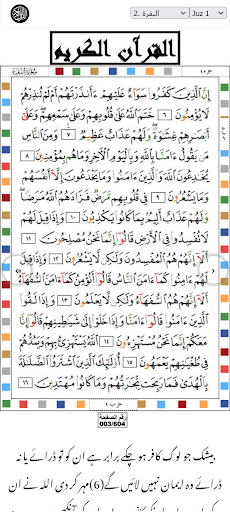 2. البقرة
Juz 1
القرآن الكريم
إِنَّ ٱلَّذِينَ كَفَرُوا۟ سَوَآءٌ عَلَيْهِمْ ءَأَنذَرْتَهُمْ أَمْ لَمْ تُنذِرْهُمْ
لَا يُؤْمِنُونَ ٦ خَتَمَ ٱللَّهُ عَلَىٰ قُلُوبِهِمْ وَعَلَىٰ سَمْعِهِمْ وَعَلَىٰٓ
أَبْصَٰرِهِمْ غِشَٰوَةٌ وَلَهُمْ عَذَابٌ عَظِيمٌ ٧ وَمِنَ ٱلنَّاسِ
مَن يَقُولُ ءَامَنَّا بِٱللَّهِ وَبِٱلْيَوْمِ ٱلْءَاخِرِ وَمَا هُم بِمُؤْمِنِينَ ٨
يُخَٰدِعُونَ ٱللَّهَ وَٱلَّذِينَ ءَامَنُوا۟ وَمَا يَخْدَعُونَ إِلَّآ أَنفُسَهُمْ
وَمَا يَشْعُرُونَ ٩ فِى قُلُوبِهِم مَّرَضٌ فَزَادَهُمُ ٱللَّهُ مَرَضًا
وَلَهُمْ عَذَابٌ أَلِيمٌۢ بِمَا كَانُوا۟ يَكْذِبُونَ ١٠ وَإِذَا قِيلَ لَهُمْ
لَا تُفْسِدُوا۟ فِى ٱلْأَرْضِ قَالُوٓا۟ إِنَّمَا نَحْنُ مُصْلِحُونَ ١١
أَلَآ إِنَّهُمْ هُمُ ٱلْمُفْسِدُونَ وَلَٰكِن لَّا يَشْعُرُونَ ١٢ وَإِذَا قِيلَ
لَهُمْ ءَامِنُوا۟ كَمَآ ءَامَنَ ٱلنَّاسُ قَالُوٓا۟ أَنُؤْمِنُ كَمَآ ءَامَنَ ٱلسُّفَهَآءُ
أَلَآ إِنَّهُمْ هُمُ ٱلسُّفَهَآءُ وَلَٰكِن لَّا يَعْلَمُونَ ١٣ وَإِذَا لَقُوا۟
ٱلَّذِينَ ءَامَنُوا۟ قَالُوٓا۟ ءَامَنَّا وَإِذَا خَلَوْا۟ إِلَىٰ شَيَٰطِينِهِمْ قَالُوٓا۟ إِنَّا
مَعَكُمْ إِنَّمَا نَحْنُ مُسْتَهْزِءُونَ ١٤ ٱللَّهُ يَسْتَهْزِئُ بِهِمْ وَيَمُدُّهُمْ
فِى طُغْيَٰنِهِمْ يَعْمَهُونَ ١٥ أُو۟لَٰٓئِكَ ٱلَّذِينَ ٱشْتَرَوُا۟ ٱلضَّلَٰلَةَ
بِٱلْهُدَىٰ فَمَا رَبِحَت تِّجَٰرَتُهُمْ وَمَا كَانُوا۟ مُهْتَدِينَ ١٦
رقم الصفحة
003/604
بیشک جو لوگ کافر ہو چکے برابر ہے ان کو تو ڈرائے یا نہ
ڈرائے وہ ایمان نہیں لائیں گے(6) مہر کر دی اللہ نے ان